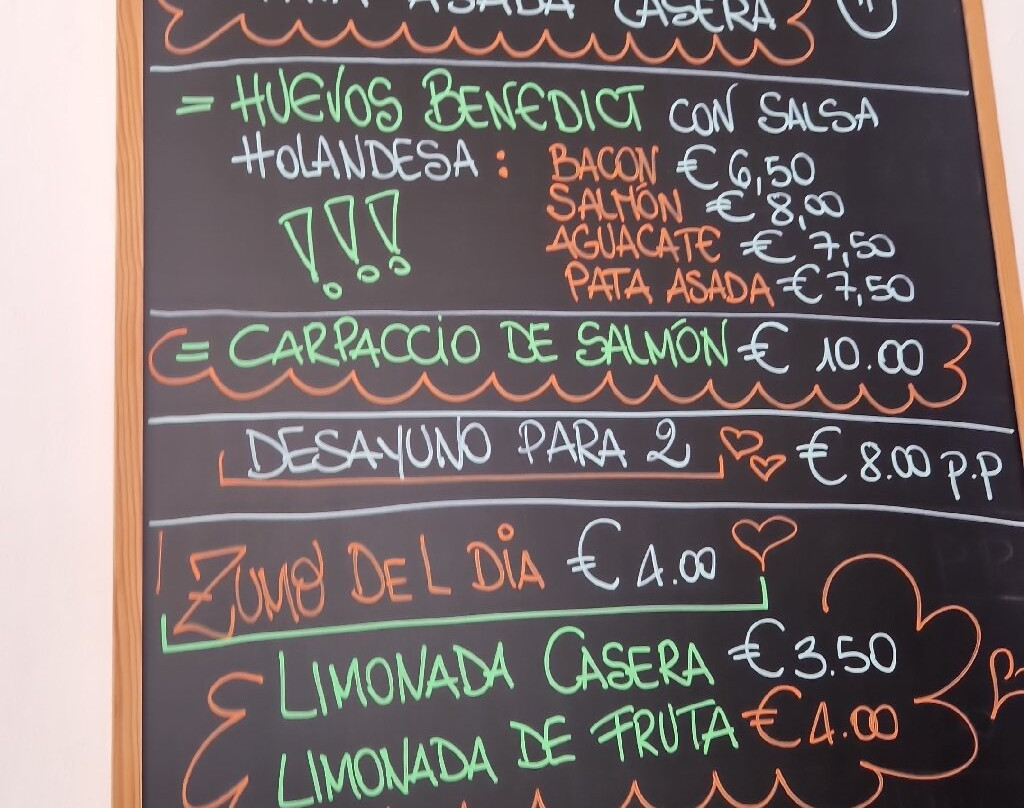 ASADA CASERA
= HUEVOS BENEDICT CON SALSA
HOLANDESA : BACON € 6,50
SALMÓN € 8,00
!!! AGUACATE € 7,50
PATA ASADA € 7,50
= CARPACCIO DE SALMÓN € 10.00
DESAYUNO PARA 2 € 8.00 P.P
ZUMO DEL DÍA € 4.00
LIMONADA CASERA € 3.50
LIMONADA DE FRUTA € 4.00